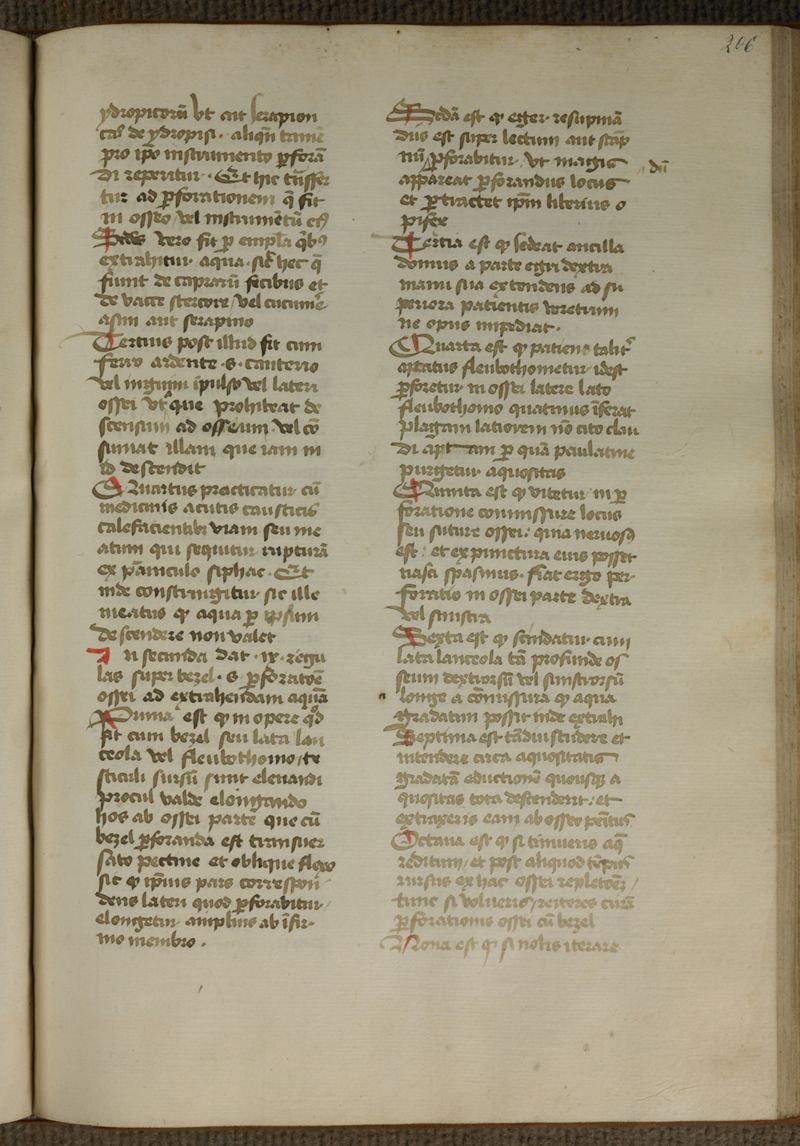 206
ydropicorū vt ait serapion
caº de ydropisi. aliqñ tamē
pro ipō instrumento ꝑforā
di reperitur. Et hic tūsser
tur ad ꝑforationem q̄ fit
in osseo vel instrumētū
vero fit ꝑ empla qͥbꝰ
extrahitur aqua. sic̄ hec q̄
fiunt de caprarū fecibus et
de vacce stercore / vel cucumēr
asini aut serapino
Tertius post illud fit cum
ferro ardente .s. cauterio
vel inguini īpulso vel lateri
ossei vtꝙque prohibeat de
scensum ad osseum vel cō
sumat illam que iam in
id descendit
Quartus practicatur cū
medicinis acutis causticis
calefacientibꝫ viam seu me
atum qui sequitur rupturā
ex pāniculo siphac. Et
inde constringitur sic ille
meatus ꝙ aqua ꝑ ipsum
descendere non valet
In secunda dat .ix. regu
las super bezel .s. ꝑforatoē
ossei ad extrahendam aquā
Prima est ꝙ in opere qͦd
fit cum bezel seu lata lan
ceola vel fleubothomo / te
sticuli sursū sunt eleuandi
procul valde elongando
hos ab ossei parte que cū
bezel ꝑforanda est transuer
sato pectine et oblique flexo
sit ꝙ ipīus pars correspon
dens lateri quod ꝑforabitur /
elongetur amplius ab īfir-
mo membro.
Scd̄a est ꝙ eger resupina
dus est super lectum aut scāp
nū ꝑforabitur vt magis dū
appareat ꝑforandus locus
et ꝑtractet ipm̄ liberius o
pifex
Tertia est ꝙ sedeat ancilla
domus a parte egri dextra
manu sua extendens ad su
periora patientis veretrum
ne opus impediat.
Quarta est ꝙ patiens talitʳ
aptatus fleubothometur idest
ꝑforetur in ossei latere lato
fleubothomo quatinus īferat
plagam latiorem nō cito clau
di aptam ꝑ quā paulatine
purgetur aquositas
Quinta est ꝙ vitetur in ꝑ
foratione commissure locus
seu suture ossei: quia neruosꝰ
est: et ex punctura eius posset
nasci spasmus. fiat ergo per
foratio in ossei parte dextra
vel sinistra
Sexta est ꝙ scindatur cum
lata lanceola tā profunde os
seum dextrorsū vel sinistrorsū
longe a cōmissura ꝙ aqua
gradatim possit inde extrahi
Septima est tādiu studere et
intendere circa aquositatis
gradatā eductionē quousqꝫ a
quositas tota descenderit: et
extraxeris eam ab osseo pēitus
Octaua est ꝙ si timueris aq̄
reditum / et post aliquod tēpus
rursus ex hac ossei repletoēꝫ /
tunc si volueris / reiteres curā
ꝑforationis ossei cū bezel
Nona est ꝙ si nolis iterare